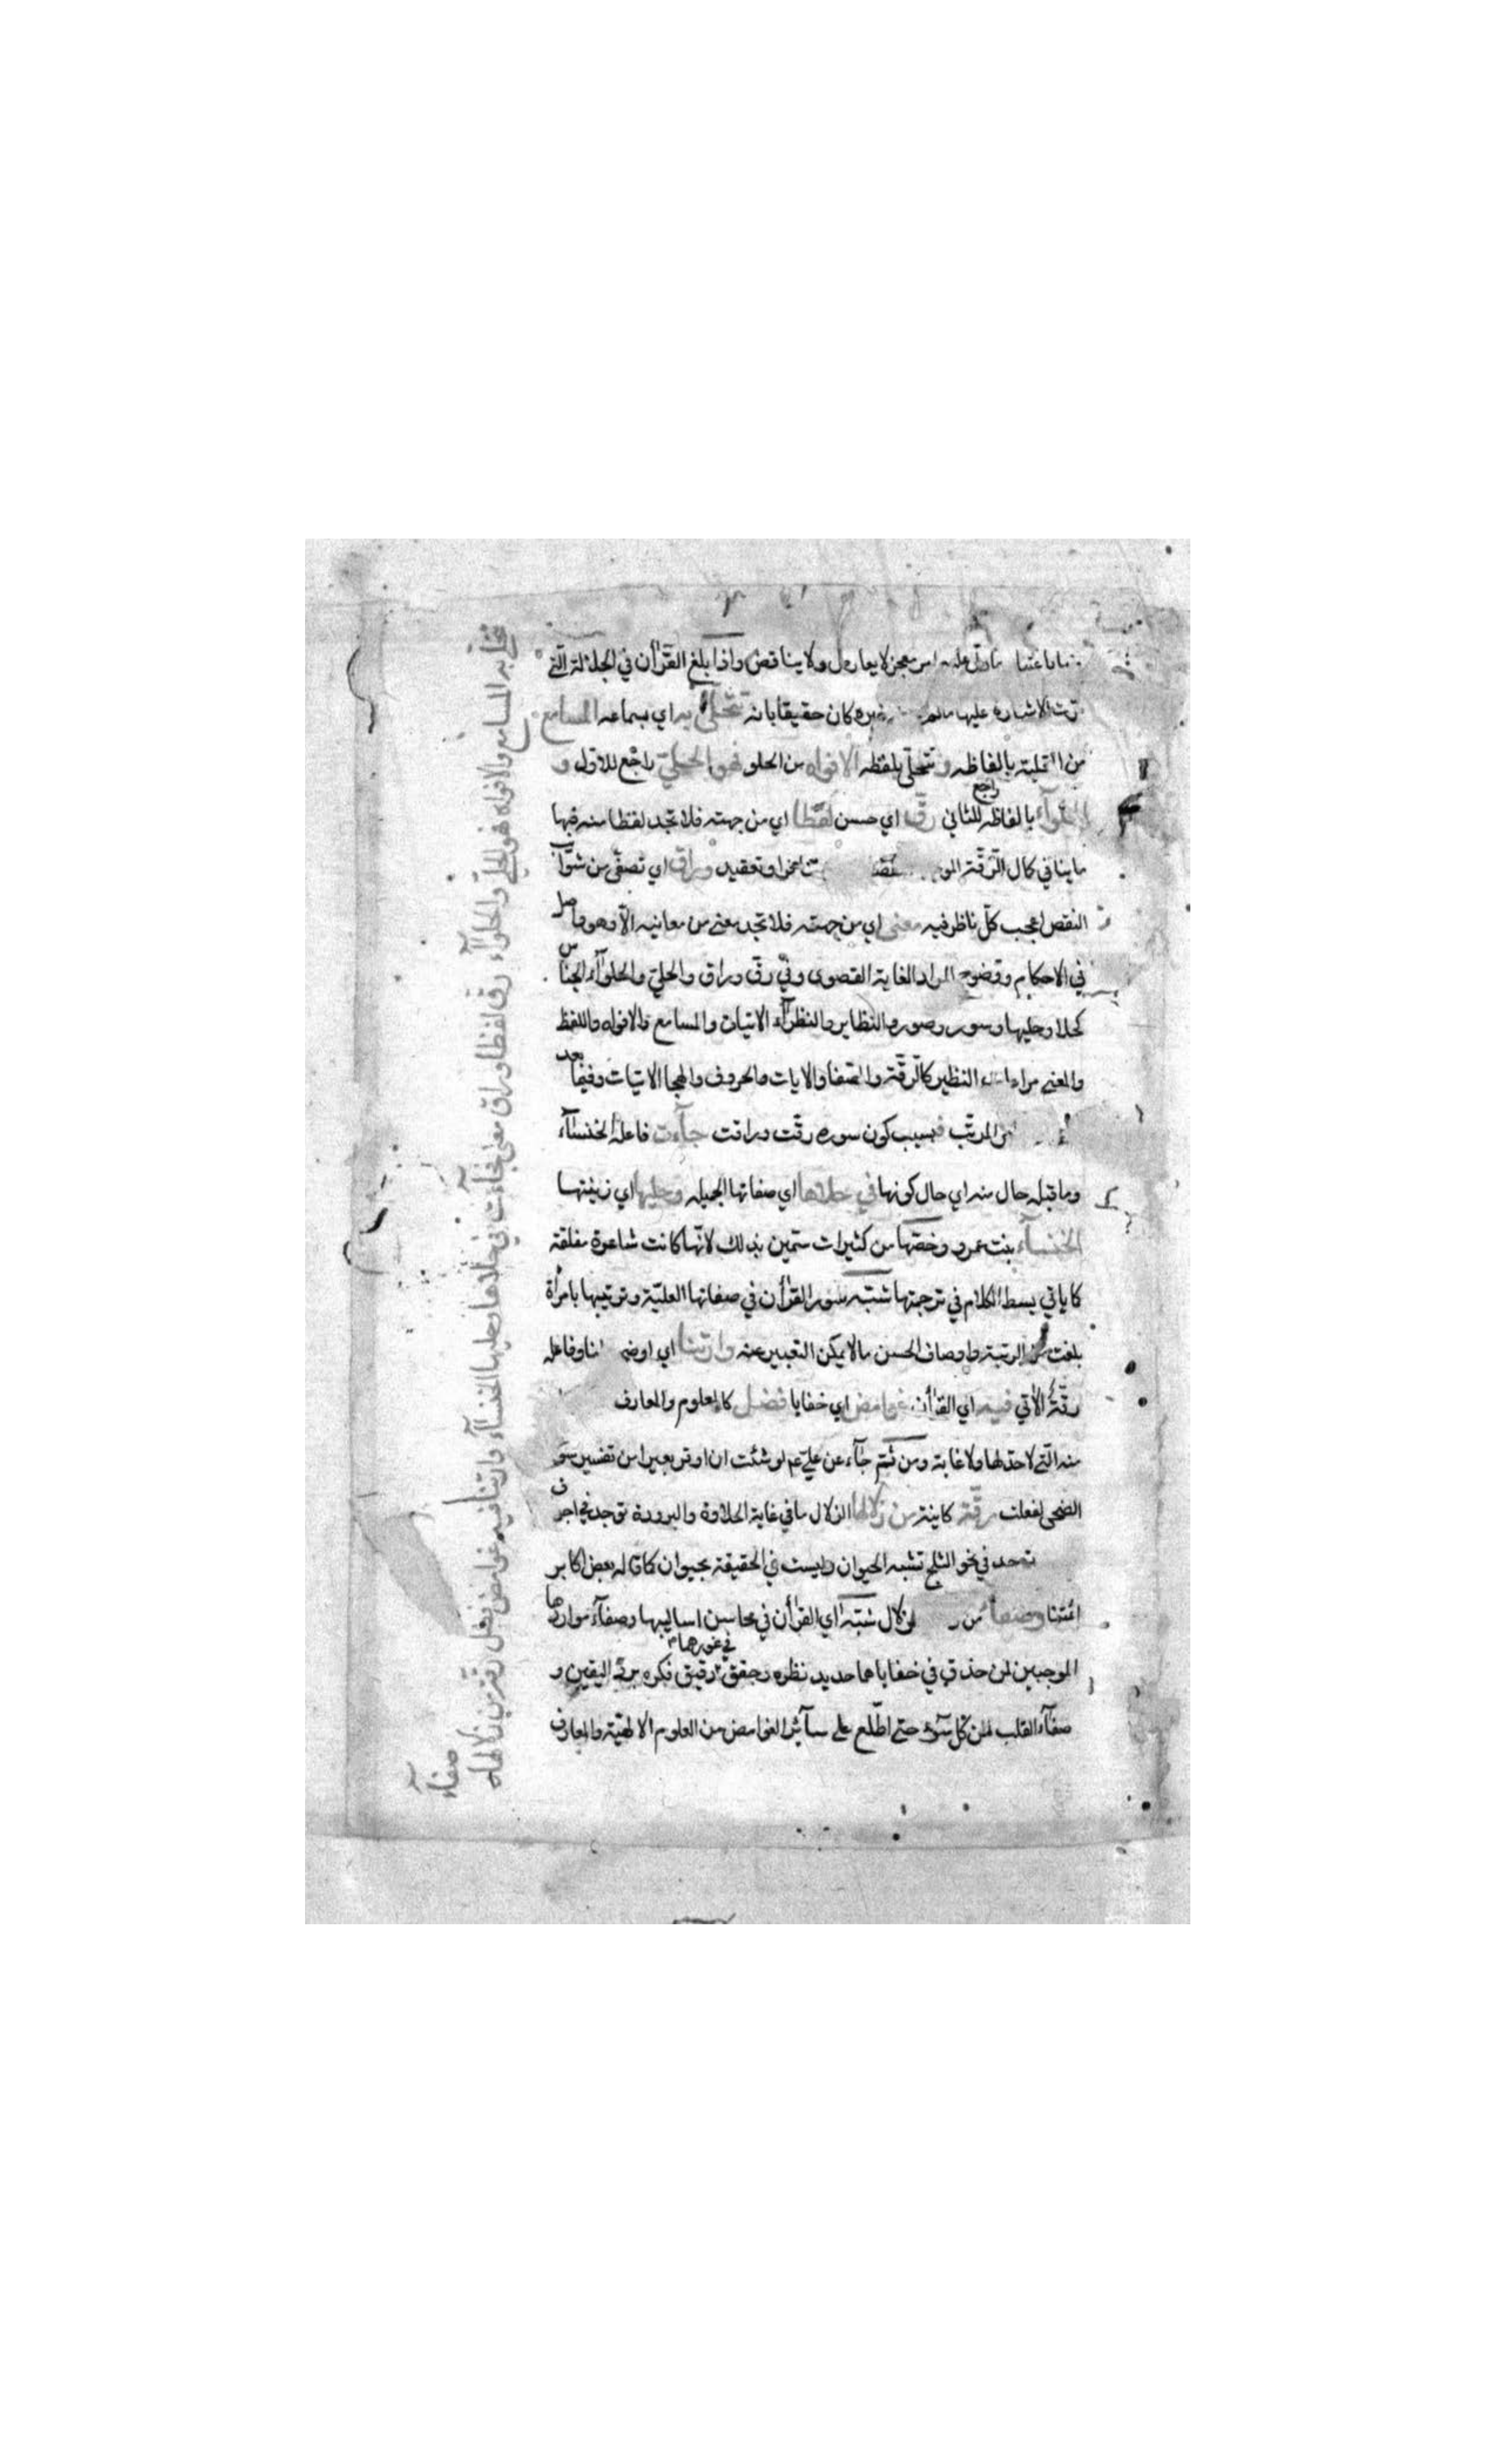 معجز لا يعارض ولا يناقض واذا بلغ القرآن في الجلالة التي
الاشارة عليها غيره كان حقيقا بانه تتحلى به اي بسماعه المسامع
من التحلية بالفاظه و تتحلى بلفظه الافواه من الحلو فهو الحلي راجع للاول و
الحلوآء بالفاظه راجع للثاني رق اي حسن لفظا اي من جهته فلا تجد لفظا منه فيها
ما ينافي كمال الرقة وتعقيد وراق اي تصفى من شوآئب
النقص اعجب كل ناظر فيه معنى اي من جهته فلا تجد معنى من معانيه الا وهو واصل
في الاحكام ووضوح المراد الغاية القصوى وفي رق وراق والحلي والحلوآء الجناس
كحلا وحليها وسور وصور والنظاير والنظرآء الاتيات والمسامع والافواه واللفظ
والمعنى مراعاة النظير كالرقة والصفا والايات والحروف والهجا الاتيات وفيها بعد
المرتب فبسبب كون سوره رقت وراقت جآءت فاعله الخنسآء
وما قبله حال منه اي حال كونها في حلاها اي صفاتها الجميله وحليها اي زينتها
الخنسآء بنت عمرو وخصها من كثيرات سمين بذلك لانها كانت شاعرة مفلقة
كما ياتي بسط الكلام في ترجمتها شبه سور القرآن في صفاتها العلية وترتيبها بامرأة
بلغت من الرتبة واوصاف الحسن ما لا يمكن التعبير عنه وارتنا اي اوضحـ لنا وفاعله
رقة الآتي فيه اي القرآن غوامض اي خفايا فضل كالعلوم والمعارف
منه التي لا حد لها ولا غاية ومن ثم جآء عن علي عم لو شئت ان اوقر بعيرا من تفسير سو
الضحى لفعلت رقة كاينة من زلالها الزلال ما في غاية الحلاوة والبرودة توجد في اجراف
توجد في نحو الثلج تشبه الحيوان وليست في الحقيقة بحيوان كما قاله بعض اكابر
ائمتنا وصفآء من الزلال شبه اي القرآن في محاسن اساليبها وصفآء مواردها
الموجبين لمن حذق في خفاياهما حديد نظره وحقق في غورهما رقيق فكره برد اليقين و
صفآء القلب لمن كل سوء حتى اطلع على سآئر الغوامض من العلوم الالهية والمعارف
تتحلى به المسامع والافواه فهو الحلي والحلوآء رق لفظا وراق معنى فجآءت في حلاها وحليها الخنسآء وارتنا فيه غوامض فضل رقة من زلالها
صفآء